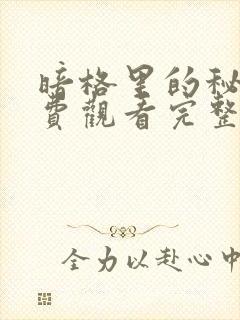 暗格里的秘
費觀看完整
全力以赴心中